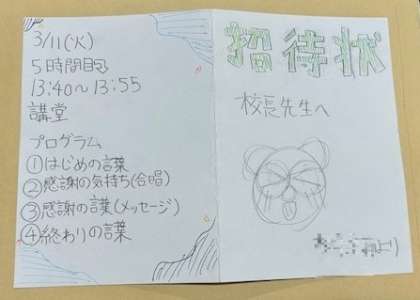 3/11(火)
5時間目
13:40~13:55
講堂
プログラム
①はじめの言葉
②感謝の気持ち(合唱)
③感謝の言葉(メッセージ)
④終わりの言葉
招待状
校長先生へ
より